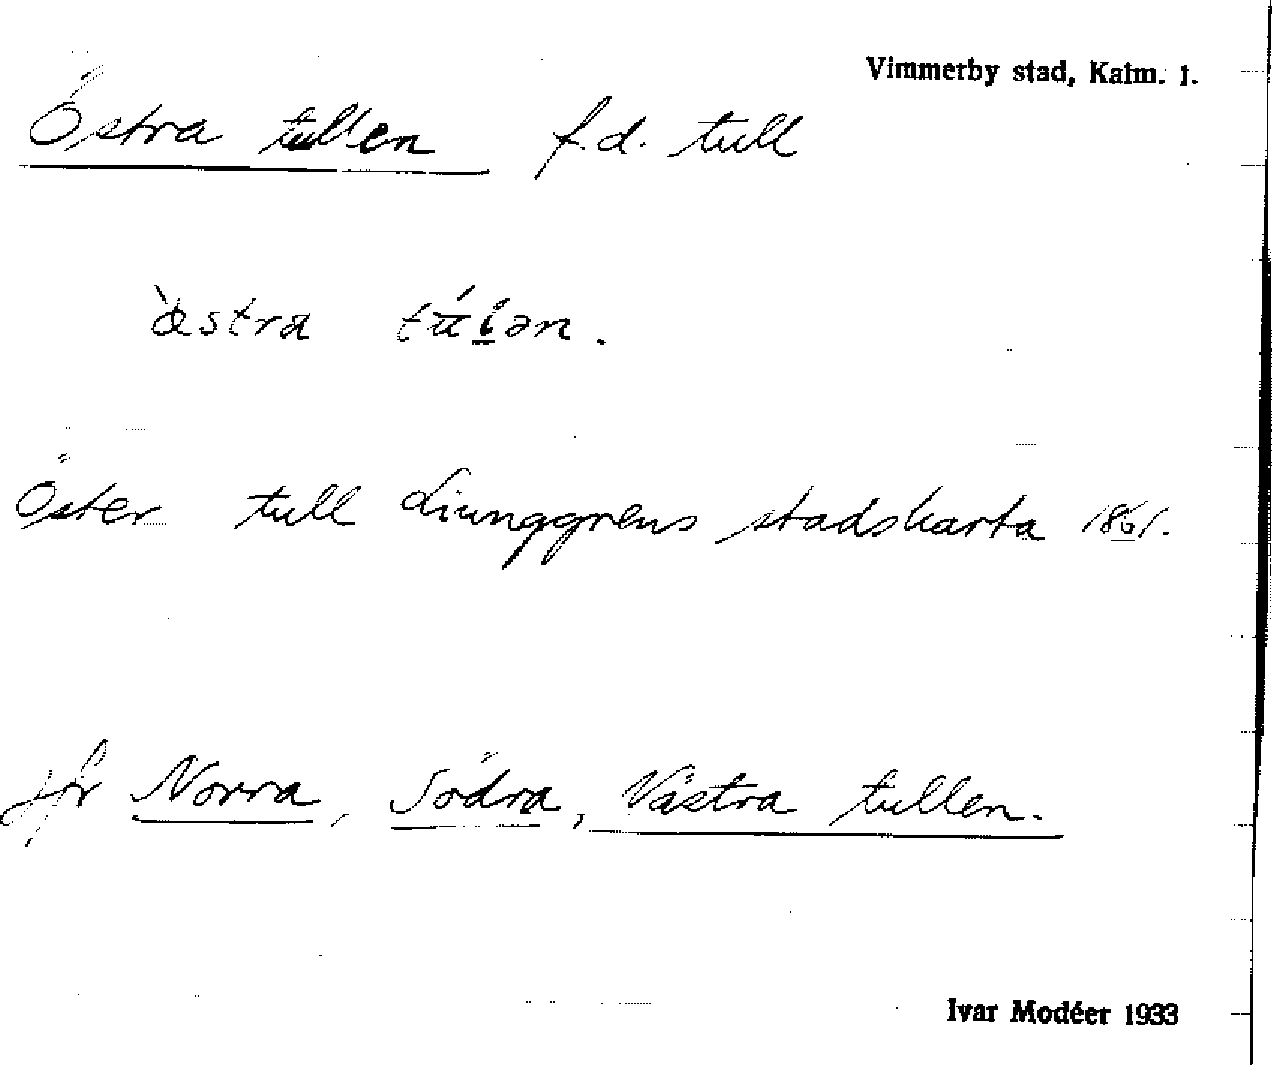 Vimmerby stad, Kalm. l.
Östra tullen f.d. tull
Öster tull Liunggrens stadskarta 1861.
jfr Norra, Södra, Västra tullen.
Ivar Modéer 1933